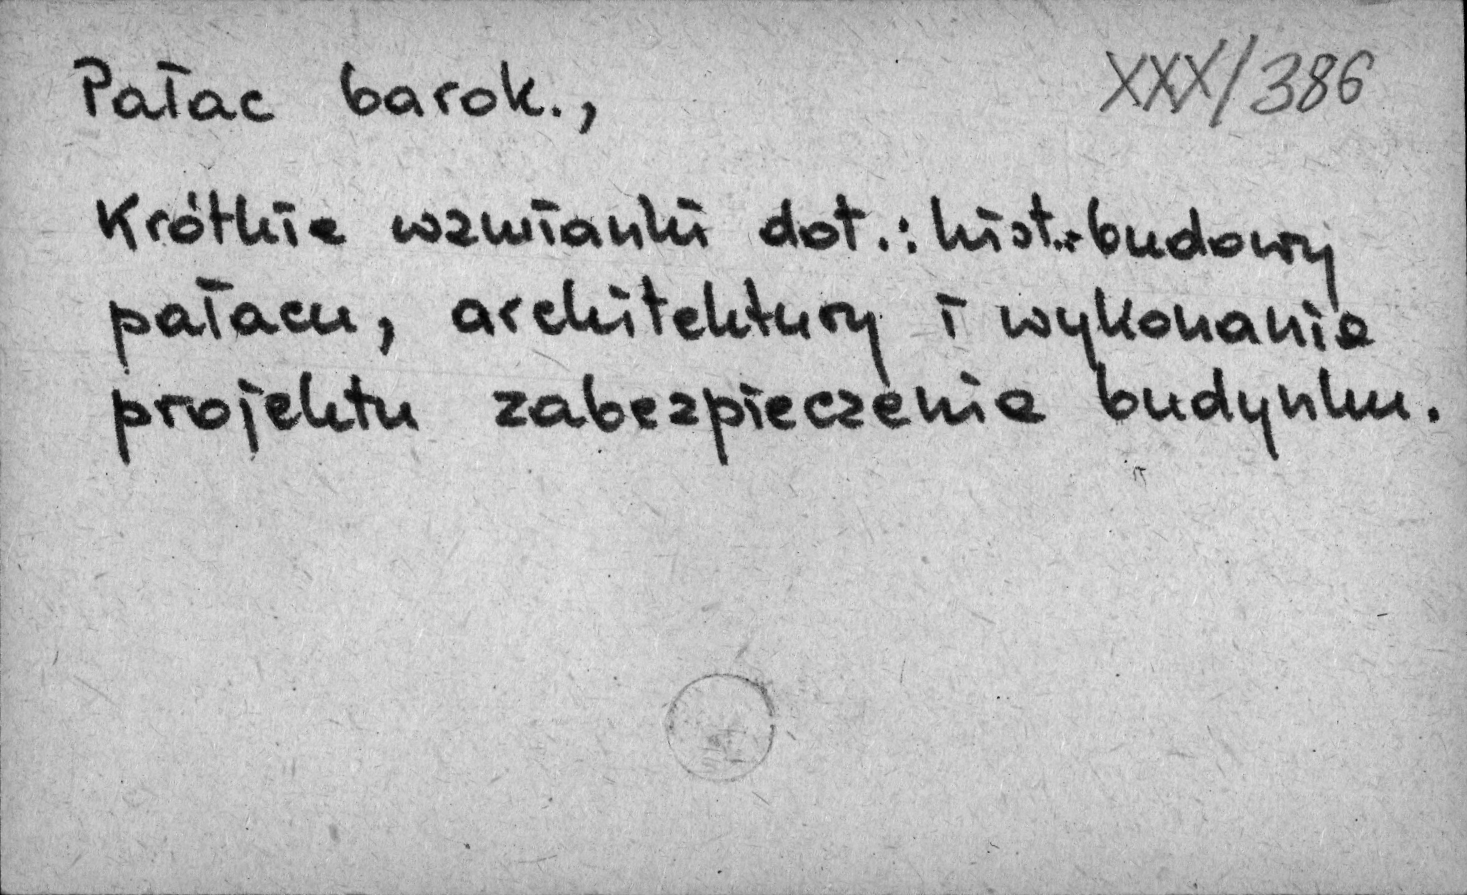 Pałac barok., XXX/386
Krótkie wzmianki dot.: hist. budowy
pałacu, architektury i wykonanie
projektu zabezpieczenie budynku.